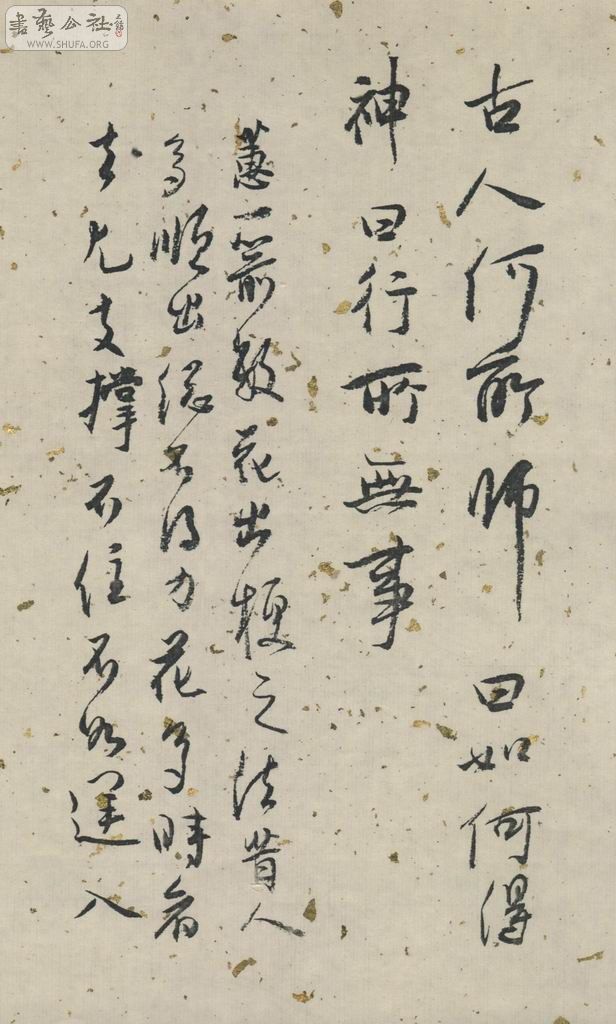 書藝公社
WWW.SHUFA.ORG
古人何所師曰如何得
神曰行所無事
蕙一箭數花出梗之法昔人
多順出總不得力花多時看
去尤支撐不住不如逆入